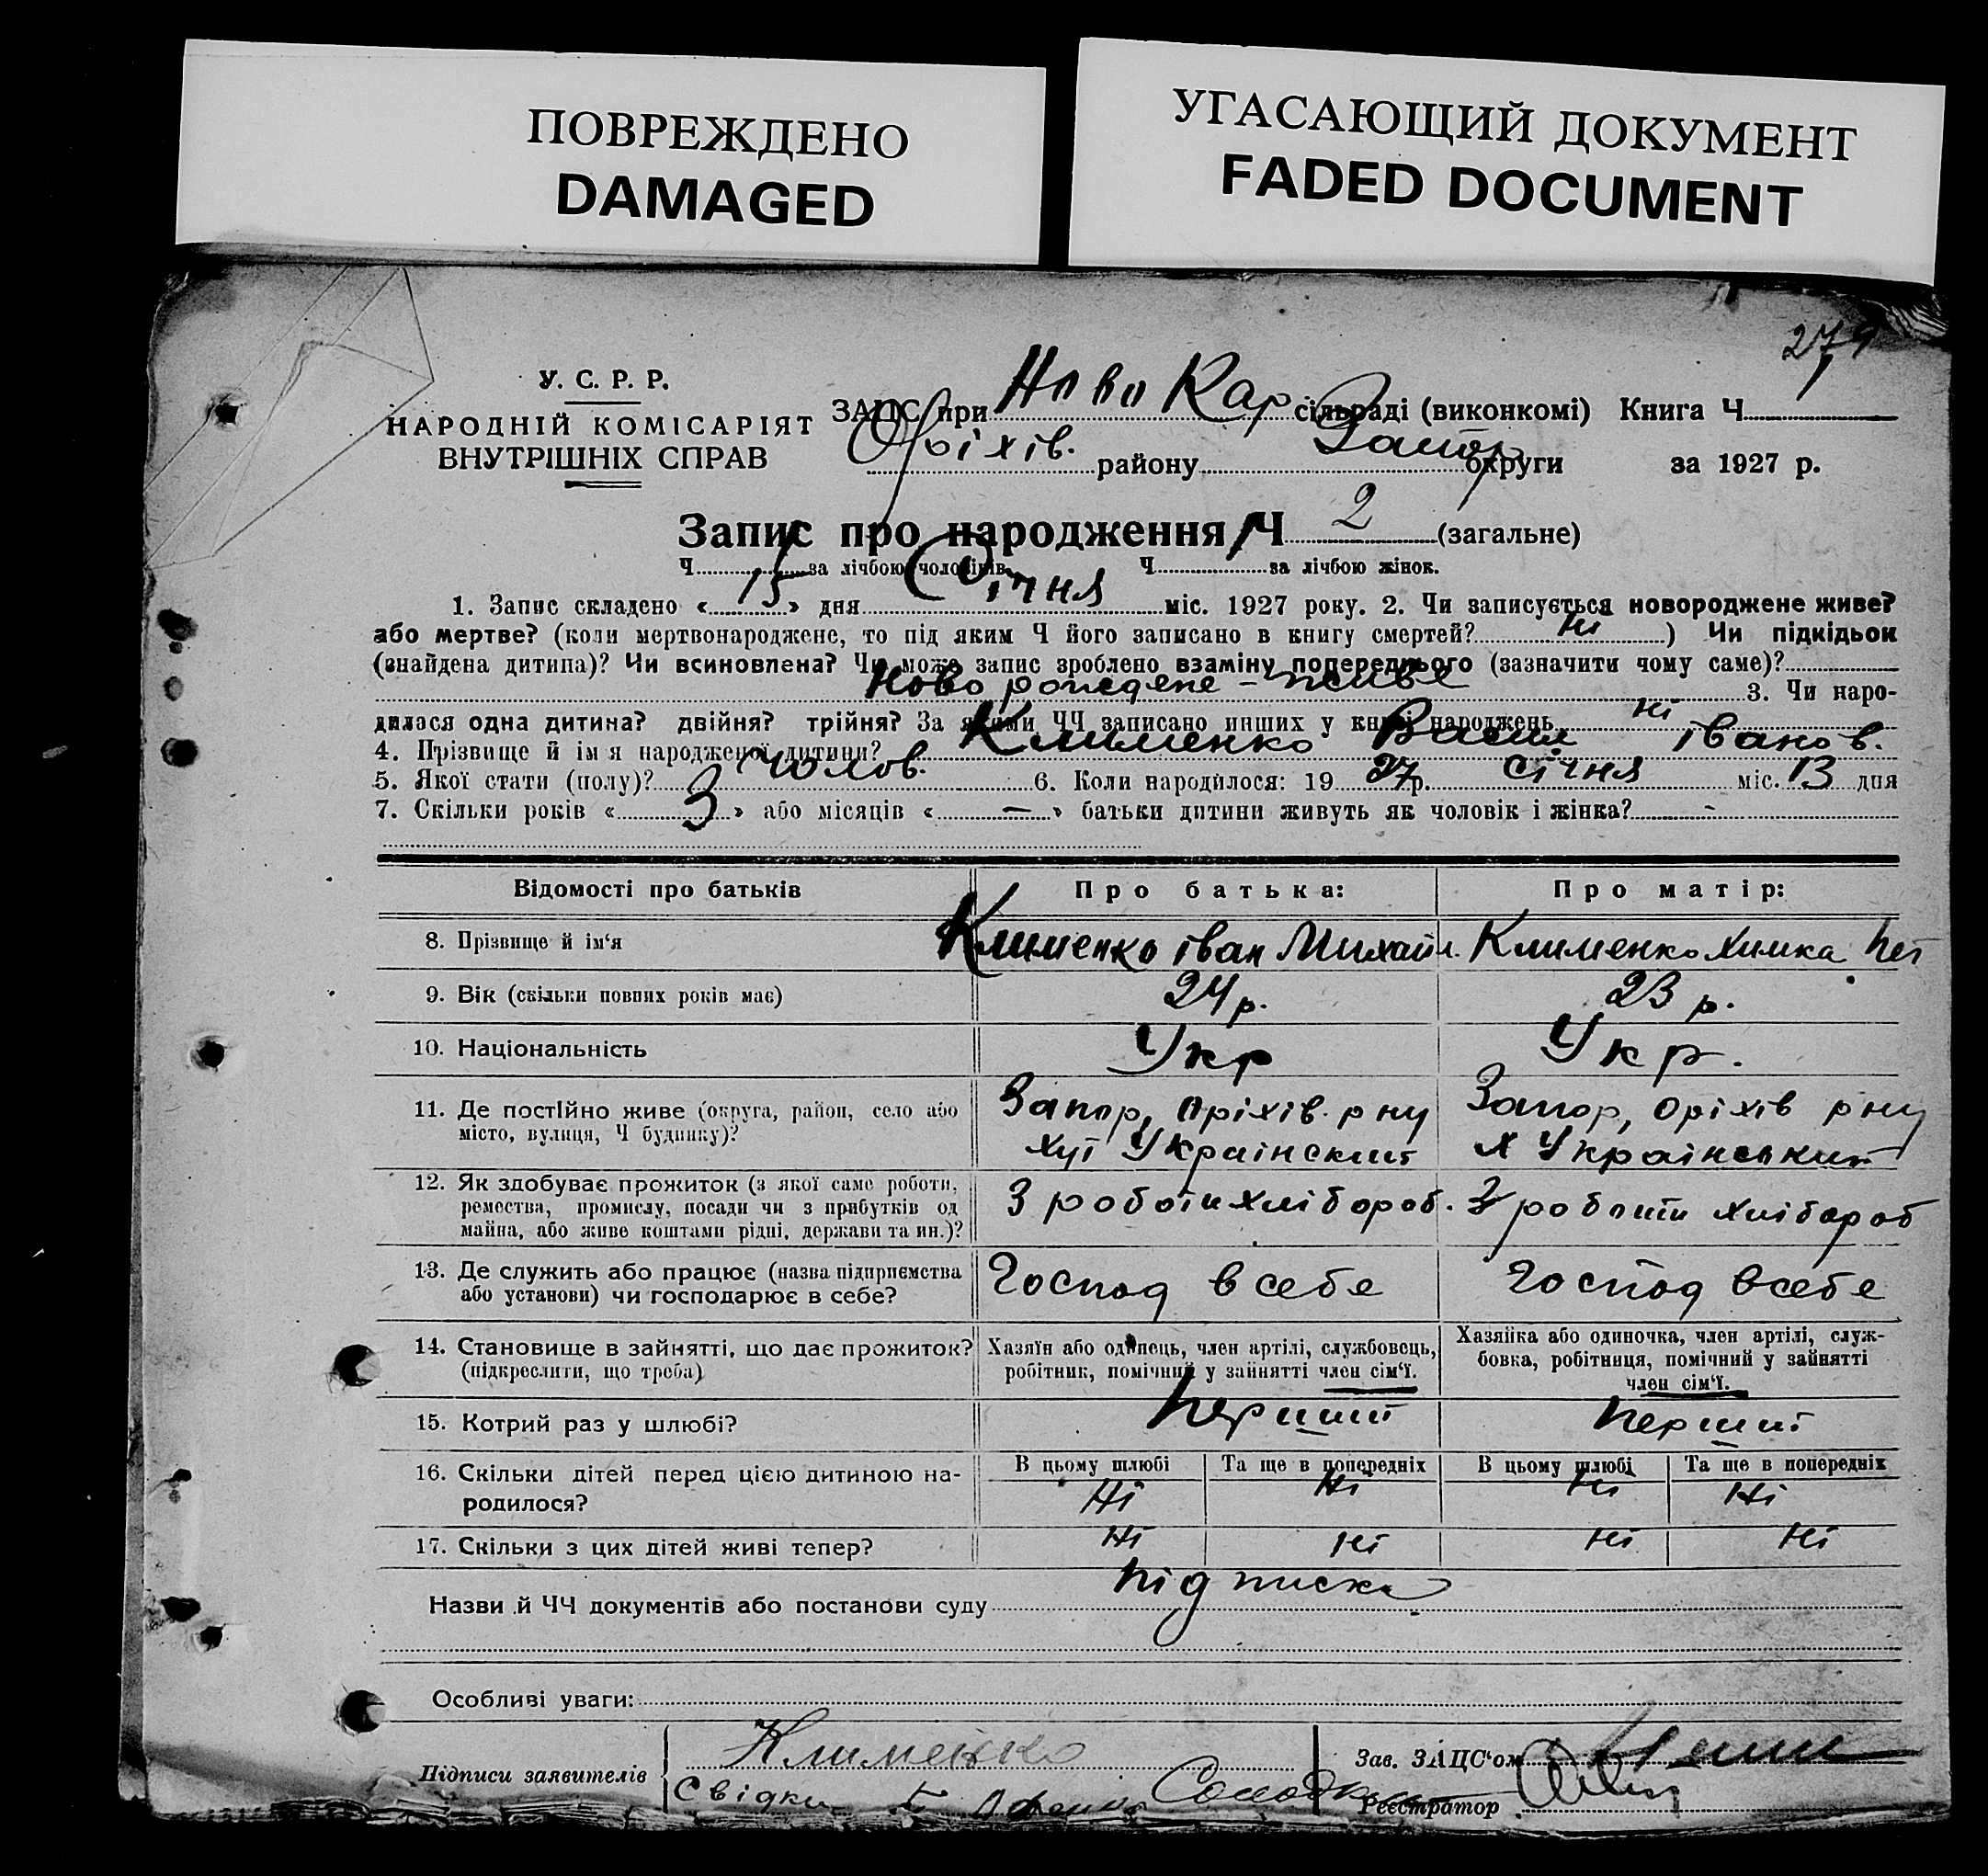 ПОВРЕЖДЕНО
DAMAGED
УГАСАЮЩИЙ ДОКУМЕНТ
FADED DOCUMENT
У. С. Р. Р.
НАРОДНІЙ КОМІСАРІЯТ
ВНУТРІШНІХ СПРАВ
ЗАГС при Ново Кар сільраді (виконкомі) Книга Ч
Оріхів. району Запор округи за 1927 р.
Запис про народження Ч 2 (загальне)
Ч за лічбою чоловіків Ч за лічбою жінок.
1. Запис складено « 15 » дня Січня міс. 1927 року. 2. Чи записується новороджене живе?
або мертве? (коли мертвонароджене, то під яким Ч його записано в книгу смертей? Ні ) Чи підкідьок
(знайдена дитина)? Чи всиновлена? Чи може запис зроблено взаміну попереднього (зазначити чому саме)?
Ново рожедене - живе 3. Чи наро-
дилася одна дитина? двійня? трійня? За якими ЧЧ записано инших у книзі народжень ні
4. Прізвище й ім я народженої дитини? Клименко Васил Іванов.
5. Якої стати (полу)? чолов. 6. Коли народилося: 19 27 р. січня міс. 13 дня
7. Скільки років « 3 » або місяців « — » батьки дитини живуть як чоловік і жінка? -
Відомості про батьків Про батька: Про матір:
8. Прізвище й ім'я Клименко Іван Михайл. Клименко Химка
9. Вік (скільки повних років має) 24 р. 23 р.
10. Національність Укр Укр.
11. Де постійно живе (округа, район, село або Запор, Оріхів. р ну Запор, Оріхів р ну
місто, вулиця, Ч будинку)? хут Український х Український
12. Як здобуває прожиток (з якої саме роботи,
ремества, промислу, посади чи з прибутків од З роботи хлібороб. З роботи хлібороб
майна, або живе коштами рідні, держави та ин.)?
13. Де служить або працює (назва підприємства Господ в себе Господ в себе
або установи) чи господарює в себе?
14. Становище в зайнятті, що дає прожиток? Хазяїн або одинець, член артілі, службовець, Хазяйка або одиночка, член артілі, служ-
(підкреслити, що треба) робітник, помічний у зайнятті член сім'ї. бовка, робітниця, помічний у зайнятті
член сім'ї.
15. Котрий раз у шлюбі? Перший Перший
16. Скільки дітей перед цією дитиною на- В цьому шлюбі Та ще в попередніх В цьому шлюбі Та ще в попередніх
родилося? Ні Ні Ні Ні
17. Скільки з цих дітей живі тепер? Ні Ні Ні Ні
Назви й ЧЧ документів або постанови суду підписка
Особливі уваги:
Підписи заявителів Клименко Зав. ЗАЦС'ом
Свідки Реєстратор